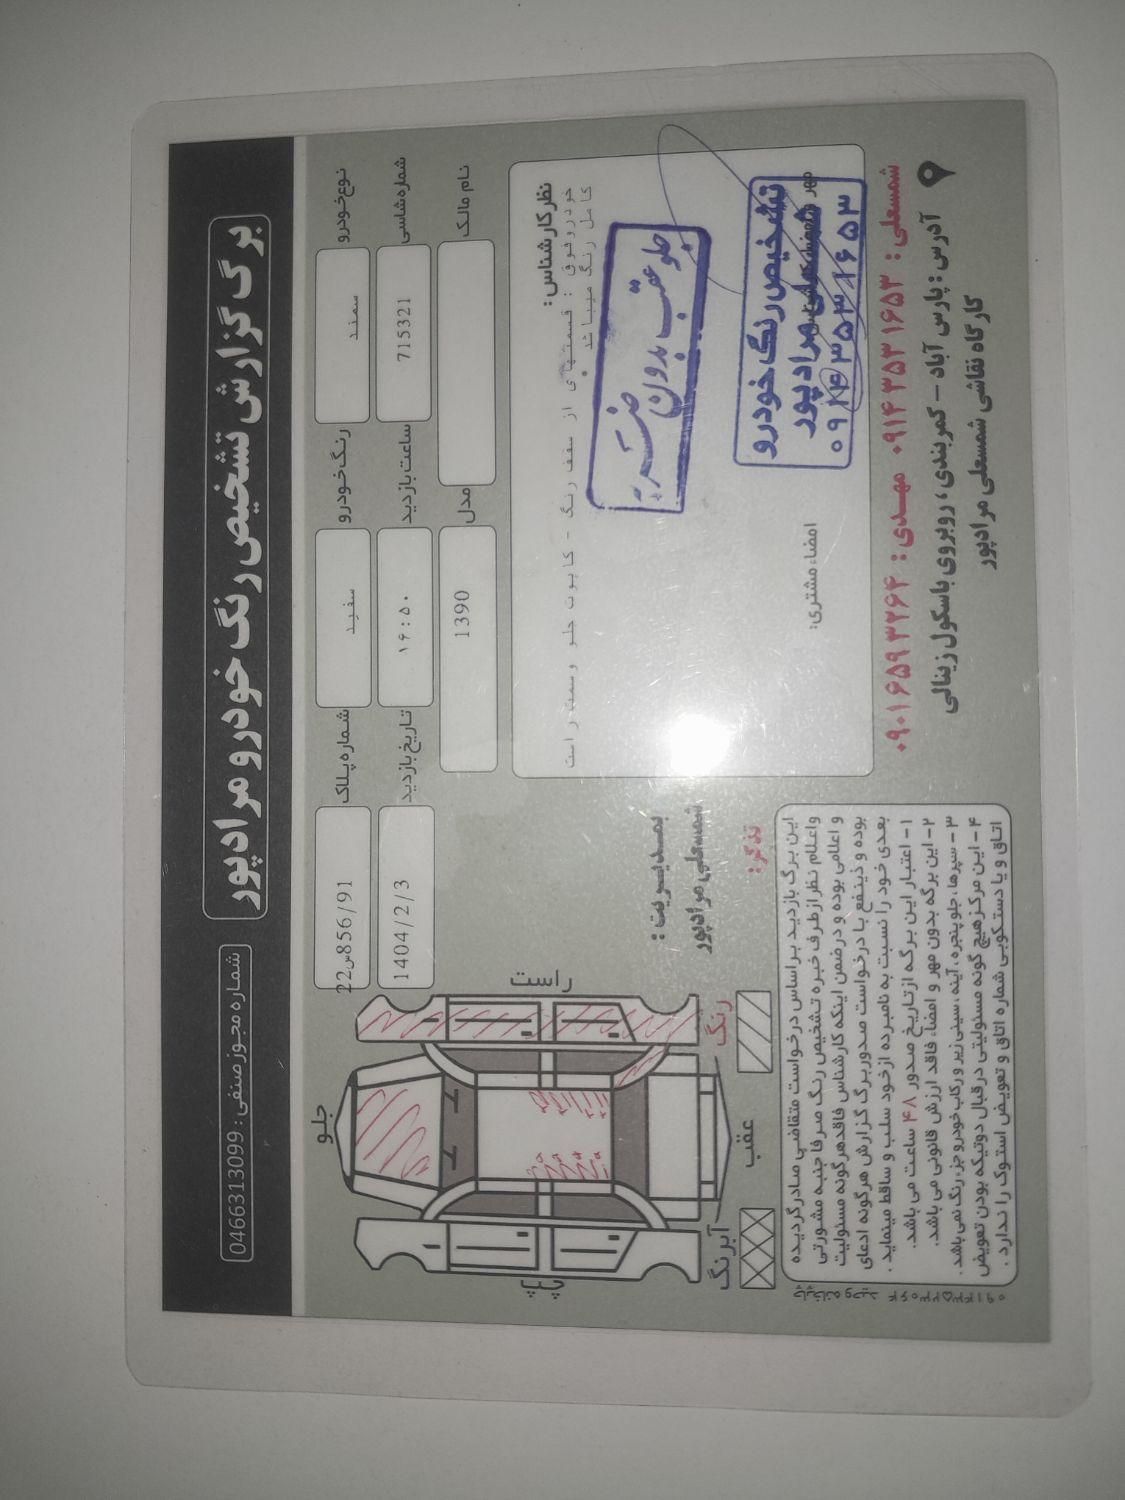 برگ گزارش تشخیص رنگ خودرو مرادپور
شماره مجوز صنفی : 0466313099
نوع خودرو سمند رنگ خودرو سفید شماره پلاک 22س856/91
شماره شاسی 715321 ساعت بازدید ۱۶:۵۰ تاریخ بازدید 1404/2/3
نام مالک مدل 1390
نظر کارشناس :
خودرو فوق : قسمتهای از سقف رنگ - کاپوت جلو و سمت راست
کامل رنگ میباشد
جلو عقب بدون ضربه
مهر و امضاء کارشناس
تشخیص رنگ خودرو
شمسعلی مرادپور
۰۹۱۴۳۵۳۱۶۵۳
امضاء مشتری :
بمدیریت :
شمسعلی مرادپور
جلو
راست
چپ
عقب
رنگ
آبرنگ
تذکر :
این برگ بازدید براساس درخواست متقاضی صادر گردیده
و اعلام نظر از طرف خبره تشخیص رنگ صرفا جنبه مشورتی
و اعلامی بوده و در ضمن اینکه کارشناس فاقد هرگونه مسئولیت
بوده و ذینفع با درخواست صدور برگ گزارش هرگونه ادعای
بعدی خود را نسبت به نامبرده از خود سلب و ساقط مینماید .
۱- اعتبار این برگه از تاریخ صدور ۴۸ ساعت می باشد.
۲- این برگه بدون مهر و امضاء فاقد ارزش قانونی می باشد.
۳- سپرها، جلو پنجره، آینه، سینی زیر و رکاب خودرو جز، رنگ نمی باشد.
۴- این مرکز هیچ گونه مسئولیتی در قبال دوتیکه بودن تعویض
اتاق و یا دستکوبی شماره اتاق و تعویض استوک را ندارد .
شمسعلی : ۰۹۱۴۳۵۳۱۶۵۳ مهدی : ۰۹۰۱۶۵۹۳۲۶۴
آدرس : پارس آباد - کمربندی، روبروی باسکول زینالی
کارگاه نقاشی شمسعلی مرادپور
چاپخانه وحید